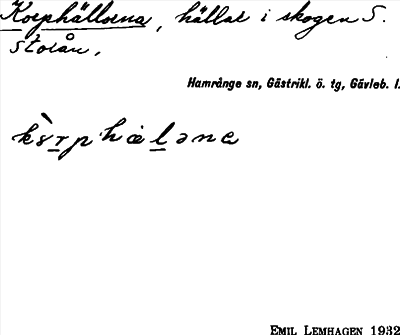 Korphällorna, hällar i skogen S.
Storån.
Hamrånge sn, Gästrikl. ö. tg, Gävleb. l.
EMIL LEMHAGEN 1932